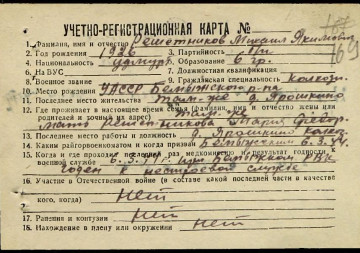 УЧЕТНО-РЕГИСТРАЦИОННАЯ КАРТА №
1. Фамилия, имя и отчество Решетников Михаил Якимович
2. Год рождения 1926 3. Партийность б/п
4. Национальность удмурт 5. Образование 6 гр.
6. № ВУС 7. Должностная квалификация
8. Военное звание 9. Гражданская специальность колхозн.
10. Место рождения УАССР Бемыжского р-на
11. Последнее место жительства Там-же д. Ярошкино
12. Где проживает в настоящее время семья (фамилия, имя и отчество жены или
родителей и точный их адрес) Там-же
мать Решетникова Мария Федор.
13. Последнее место работы и должность д. Ярошкино колхоз
14. Каким райгорвоенкоматом и когда призван Бемыжским 6.3.44
15. Когда и где проходил последний раз медкомиссию и результат годности к
военной службе 6.3.44 г. при Бемыжском РВК
годен к нестроевой службе
16. Участие в Отечественной войне (в составе какой последней части и качестве
кого, когда) Нет
17. Ранения и контузии Нет
18. Нахождение в плену или окружении Нет